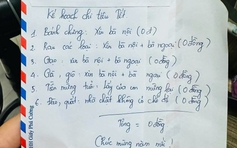 Kế hoạch chi tiêu Tết
1. Bánh chưng: Xin bà nội (0đ)
2. Rau các loại: Xin bà nội + bà ngoại (0 đồng)
3. Gạo: Xin bà nội + bà ngoại (0 đồng)
4. Gà, giò: Xin bà nội + bà ngoại (0 đồng)
5. Tiền mừng tuổi: lấy của con mừng lại (0 đồng)
6. đào, quất: nhà chật không có chỗ để (0 đồng)
Tổng = 0 đồng
Chúc mừng năm mới!